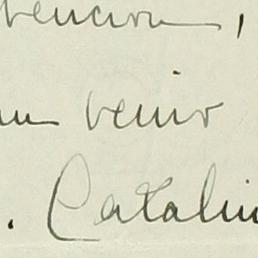 vencion,
venir
. Catalin